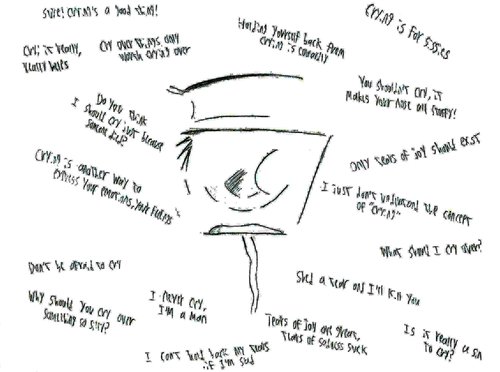 Sure! Crying's a good thing!
Cry; it really,
really helps
Cry over things only
worth crying over
Holding yourself back from
crying is cowardly
Crying is for sissies
Do you think
I should cry just because
someone died?
You shouldn't cry, it
makes your nose all snotty!
Crying is another way to
express your emotions, your feelings
Only tears of joy should exist
I just don't understand the concept
of "crying"
What should I cry over?
Don't be afraid to cry
Shed a tear and I'll kill you
Why should you cry over
something so silly?
I never cry,
I'm a man
Tears of joy are great,
Tears of sadness suck
Is it really a sin
to cry?
I can't hold back my tears
if I'm sad